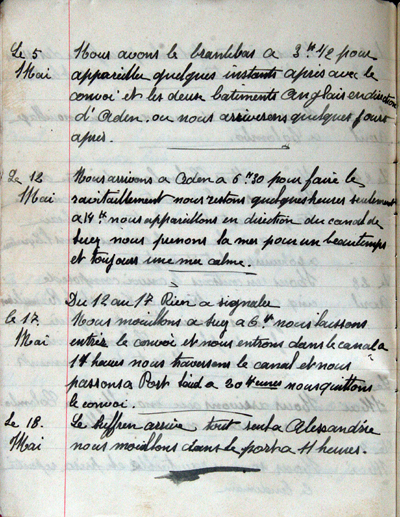 Le 5 Nous avons le branlebas a 3 H 1/2 pour
Mai appareiller quelques instants après avec le
convoi et les deux batiments Anglais en direction
d'Aden. ou nous arriverons quelques jours
apres.
Le 12 Nous arrivons a Aden a 6 H 30 pour faire le
Mai ravitaillement nous restons quelques heures seulement
a 14 H nous appareillons en direction du canal de
Suez nous prenons la mer pour un beau temps
et toujours une mer calme.
Du 12 au 17 Rien a signaler
le 17. Nous mouillons a Suez a 6 H nous laissons
Mai entrer le convoi et nous entrons dans le canal a
heures nous traversons le canal et nous
passons a Port Said a 20 Heures nous quittons
le convoi.
Le 18. Le Suffren arrive tout seul a Alessandrie
Mai nous mouillons dans le port a 11 heures.